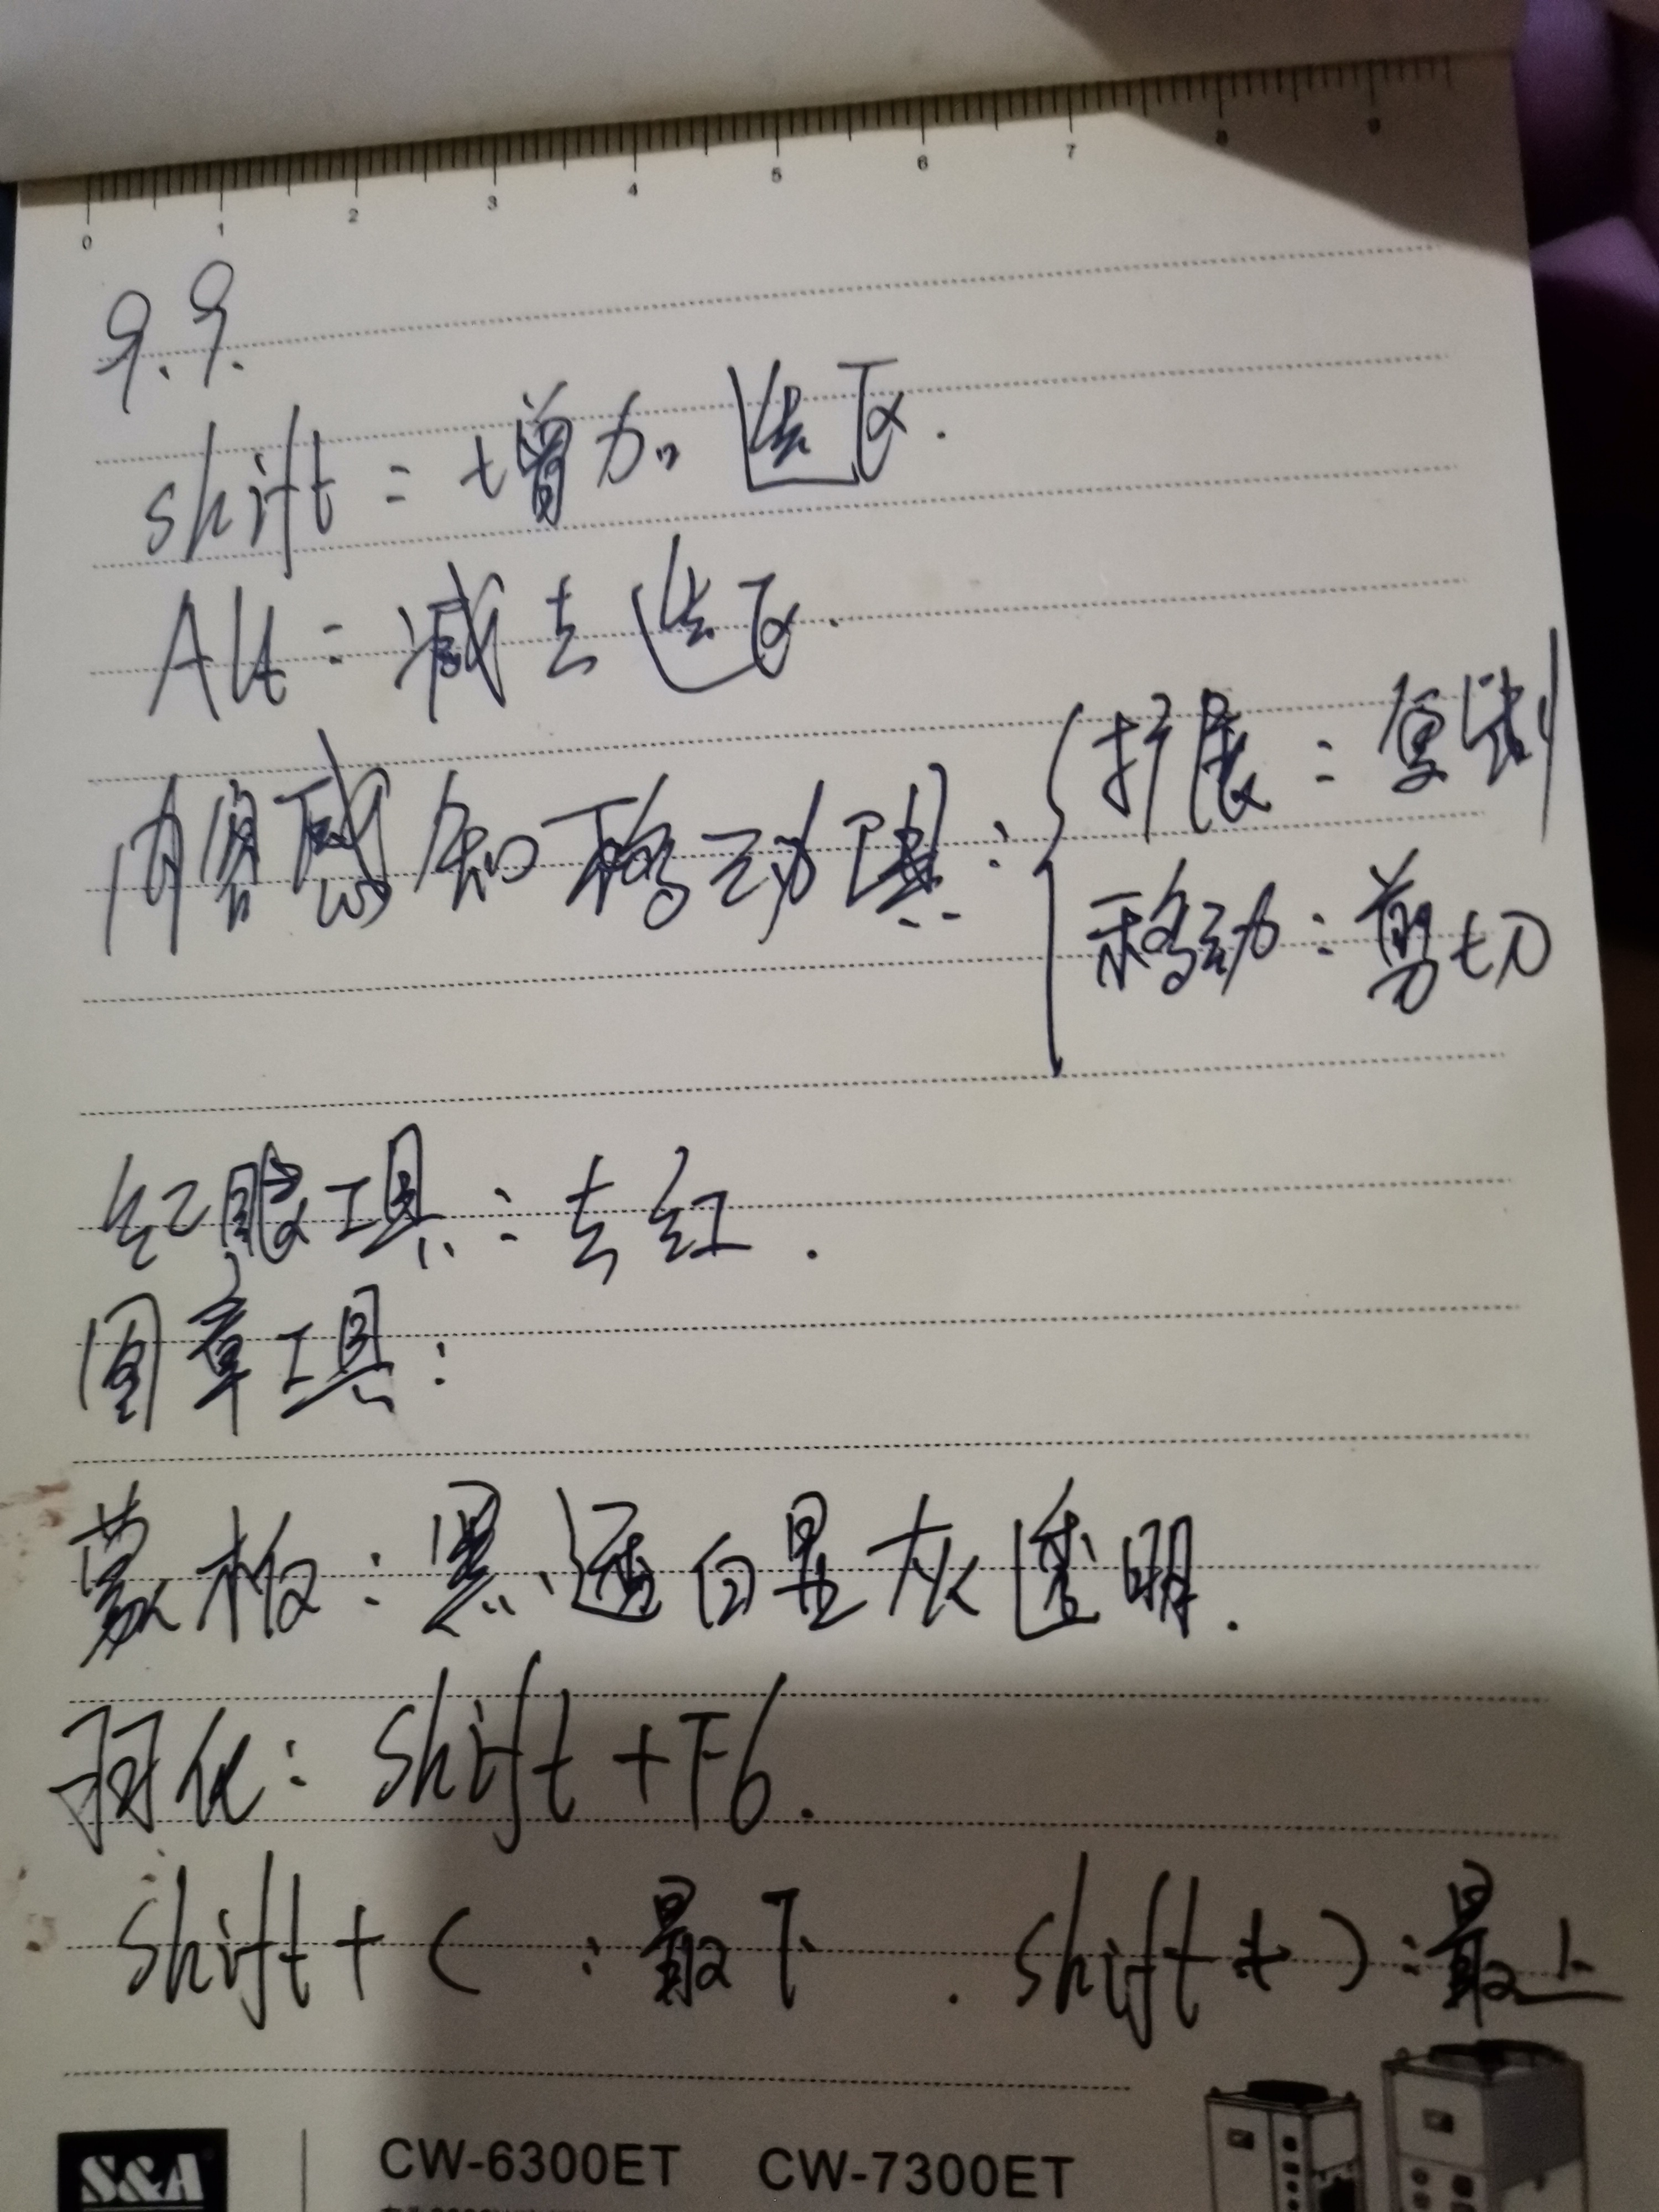 0 1 2 3 4 5 6 7 8 9
9.9.
shift = 增加选区.
Alt = 减去选区.
内容感知移动工具: { 扩展: 复制
移动: 剪切
红眼工具: 去红.
图章工具:
蒙板: 黑透白显灰透明.
羽化: shift+F6.
shift+( : 最下. shift+): 最上
S&A
CW-6300ET CW-7300ET